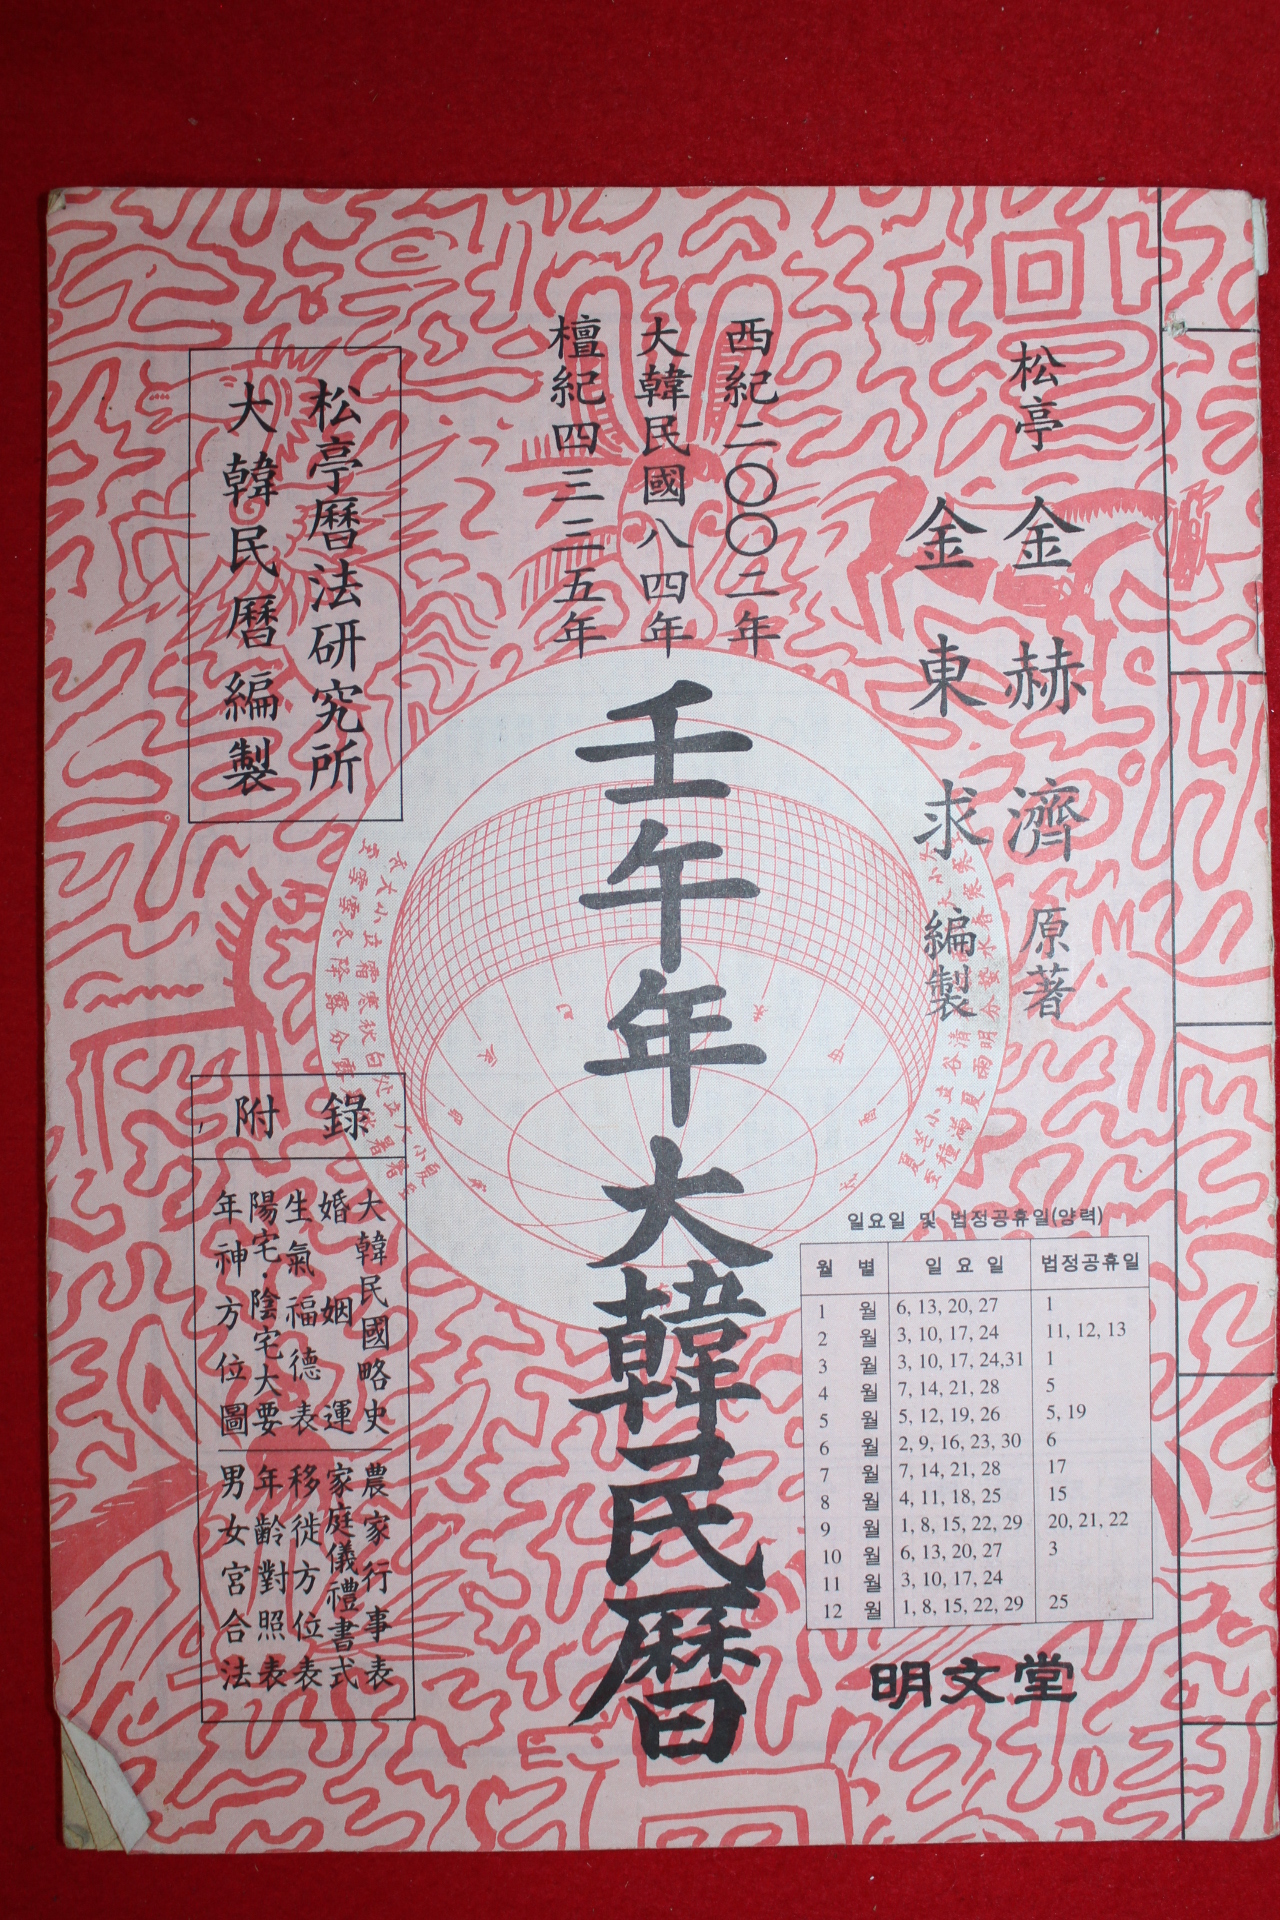 松亭 金赫濟 原著
金東求 編製
西紀二〇〇二年
大韓民國八四年
檀紀四三三五年
壬午年大韓民曆
松亭曆法研究所
大韓民曆編製
附錄
大韓民國略史
婚姻運
生氣福德表
陽宅·陰宅大要
年神方位圖
農家行事表
家庭儀禮書式
移徙方位表
年齡對照表
男女宮合法
일요일 및 법정공휴일(양력)
월 별 일 요 일 법정공휴일
1 월 6, 13, 20, 27 1
2 월 3, 10, 17, 24 11, 12, 13
3 월 3, 10, 17, 24,31 1
4 월 7, 14, 21, 28 5
5 월 5, 12, 19, 26 5, 19
6 월 2, 9, 16, 23, 30 6
7 월 7, 14, 21, 28 17
8 월 4, 11, 18, 25 15
9 월 1, 8, 15, 22, 29 20, 21, 22
10 월 6, 13, 20, 27 3
11 월 3, 10, 17, 24
12 월 1, 8, 15, 22, 29 25
明文堂